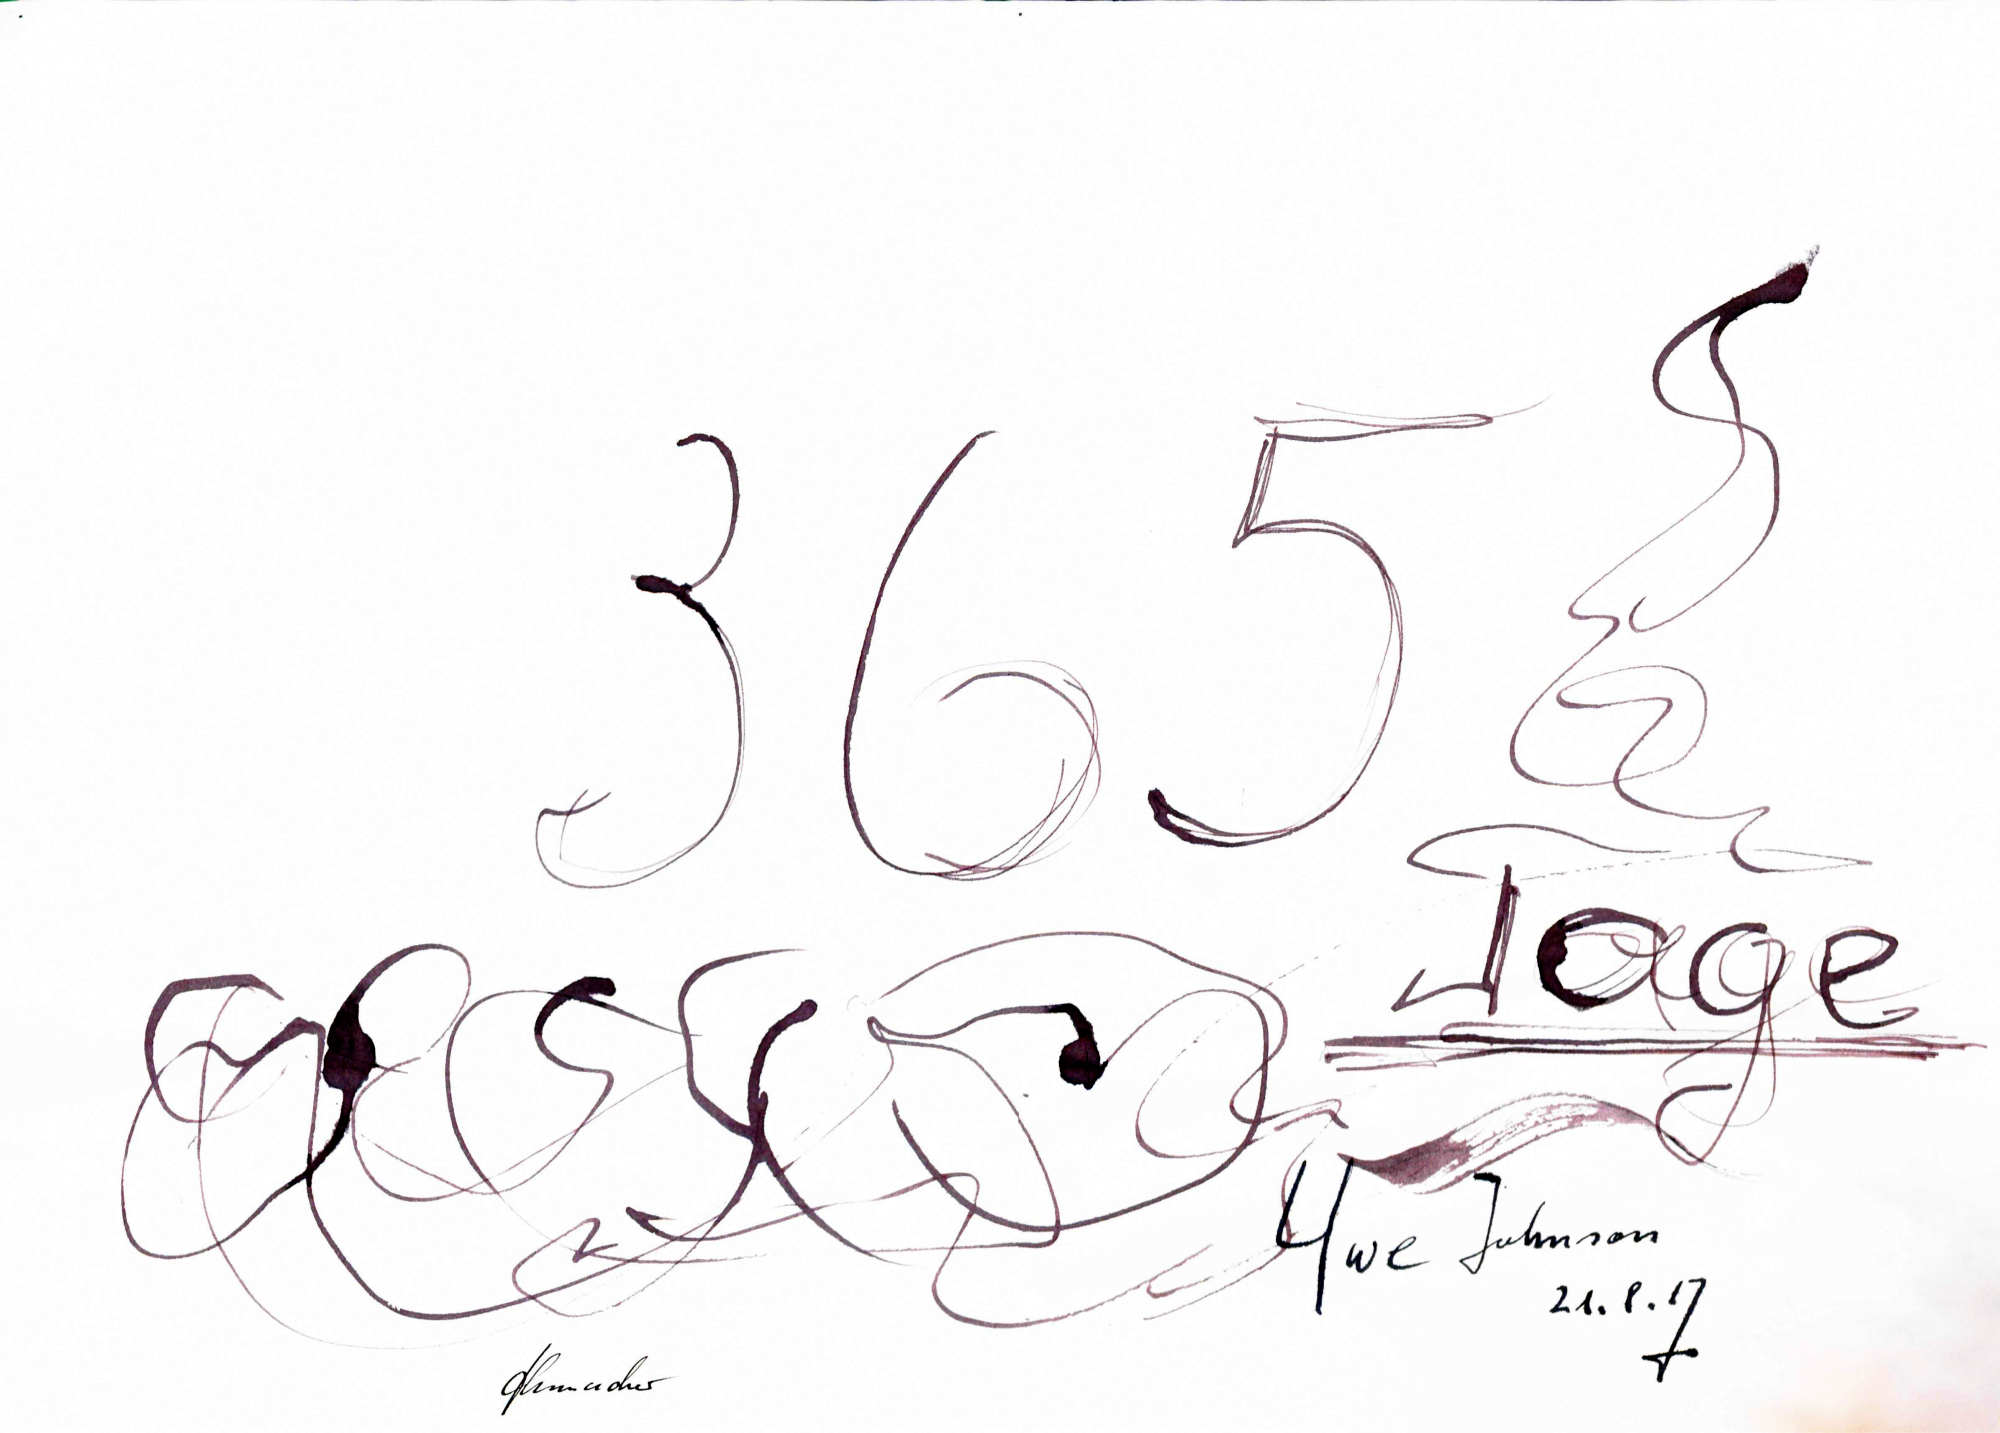 365
Tage
Uwe Johnson
21.8.17